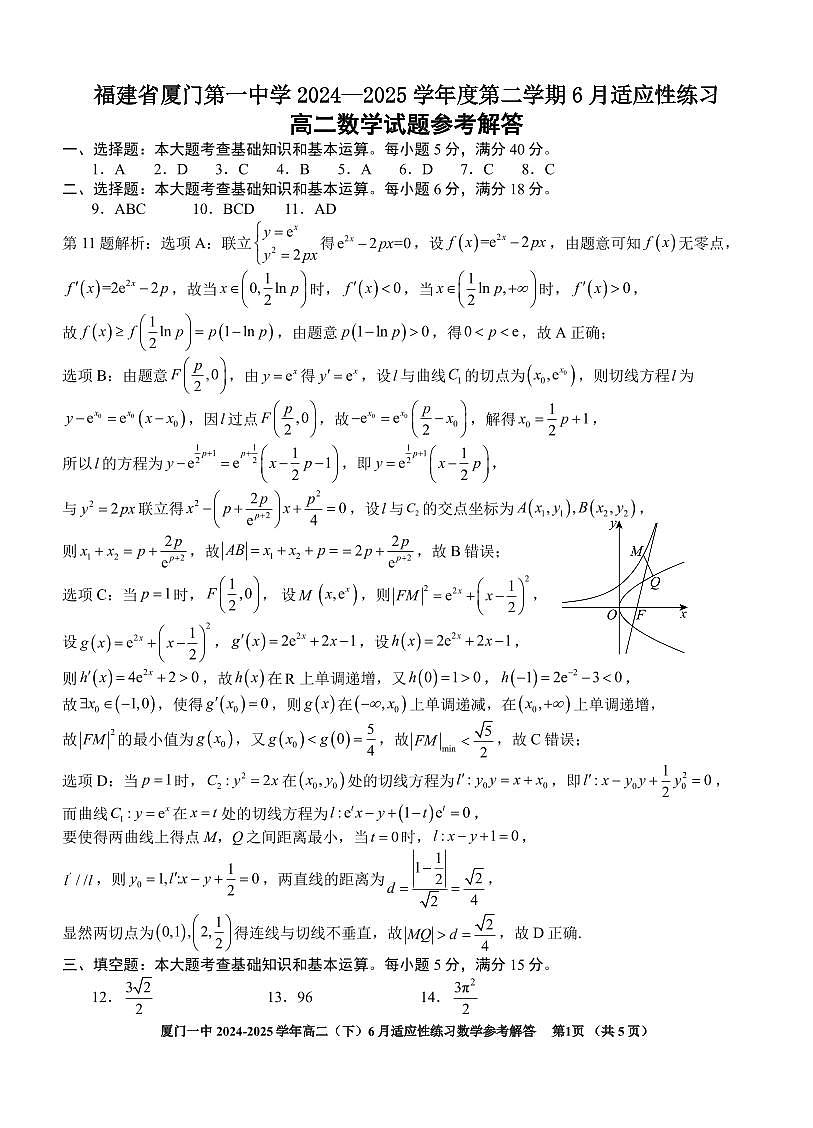 福建省厦门第一中学 2024—2025 学年度第二学期 6 月适应性练习
高二数学试题参考解答
一、选择题：本大题考查基础知识和基本运算。每小题 5 分，满分 40 分。
1．A 2．D 3．C 4．B 5．A 6．D 7．C 8．C
二、选择题：本大题考查基础知识和基本运算。每小题 6 分，满分 18 分。
9．ABC 10．BCD 11．AD
第 11 题解析：选项 A：联立 {y=e^x, y²=2px 得 e^{2x}−2px=0，设 f(x)=e^{2x}−2px，由题意可知 f(x) 无零点，
f′(x)=2e^{2x}−2p，故当 x∈(0, 1/2 ln p) 时，f′(x)<0，当 x∈(1/2 ln p,+∞) 时，f′(x)>0，
故 f(x)≥f(1/2 ln p)=p(1−ln p)，由题意 p(1−ln p)>0，得 0<p<e，故 A 正确；
选项 B：由题意 F(p/2,0)，由 y=e^x 得 y′=e^x，设 l 与曲线 C₁ 的切点为 (x₀,e^{x₀})，则切线方程 l 为
y−e^{x₀}=e^{x₀}(x−x₀)，因 l 过点 F(p/2,0)，故 −e^{x₀}=e^{x₀}(p/2−x₀)，解得 x₀=1/2 p+1，
所以 l 的方程为 y−e^{1/2 p+1}=e^{p+1/2}(x−1/2 p−1)，即 y=e^{1/2 p+1}(x−1/2 p)，
与 y²=2px 联立得 x²−(p+2p/e^{p+2})x+p²/4=0，设 l 与 C₂ 的交点坐标为 A(x₁,y₁),B(x₂,y₂)，
则 x₁+x₂=p+2p/e^{p+2}，故 |AB|=x₁+x₂+p==2p+2p/e^{p+2}，故 B 错误；
选项 C：当 p=1 时，F(1/2,0)， 设 M (x,e^x)，则 |FM|²=e^{2x}+(x−1/2)²，
设 g(x)=e^{2x}+(x−1/2)²，g′(x)=2e^{2x}+2x−1，设 h(x)=2e^{2x}+2x−1，
则 h′(x)=4e^{2x}+2>0，故 h(x) 在 R 上单调递增，又 h(0)=1>0，h(−1)=2e^{−2}−3<0，
故 ∃x₀∈(−1,0)，使得 g′(x₀)=0，则 g(x) 在 (−∞,x₀) 上单调递减，在 (x₀,+∞) 上单调递增，
故 |FM|² 的最小值为 g(x₀)，又 g(x₀)<g(0)=5/4，故 |FM|min<√5/2，故 C 错误；
y
M
Q
O F x
选项 D：当 p=1 时，C₂:y²=2x 在 (x₀,y₀) 处的切线方程为 l′:y₀y=x+x₀，即 l′:x−y₀y+1/2 y₀²=0，
而曲线 C₁:y=e^x 在 x=t 处的切线方程为 l:e^t x−y+(1−t)e^t=0，
要使得两曲线上得点 M，Q 之间距离最小，当 t=0 时，l:x−y+1=0，
l′//l，则 y₀=1,l′:x−y+1/2=0，两直线的距离为 d=|1−1/2|/√2=√2/4，
显然两切点为 (0,1),(2,1/2) 得连线与切线不垂直，故 |MQ|>d=√2/4，故 D 正确.
三、填空题：本大题考查基础知识和基本运算。每小题 5 分，满分 15 分。
12．3√2/2 13．96 14．3π²/2
厦门一中 2024-2025 学年高二（下）6 月适应性练习数学参考解答 第1页 （共 5 页）